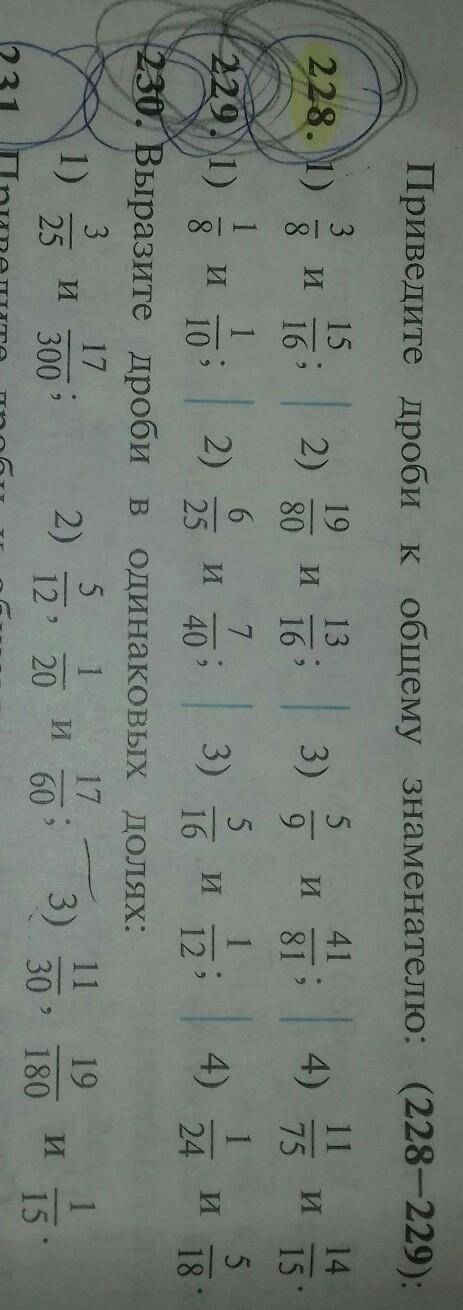 Приведите дроби к общему знаменателю: (228—229):
228. 1) 3/8 и 15/16; 2) 19/80 и 13/16; 3) 5/9 и 41/81; 4) 11/75 и 14/15.
229. 1) 1/8 и 1/10; 2) 6/25 и 7/40; 3) 5/16 и 1/12; 4) 1/24 и 5/18.
230. Выразите дроби в одинаковых долях:
1) 3/25 и 17/300; 2) 5/12, 1/20 и 17/60; 3) 11/30, 19/180 и 1/15.
231. Приведите дроби к